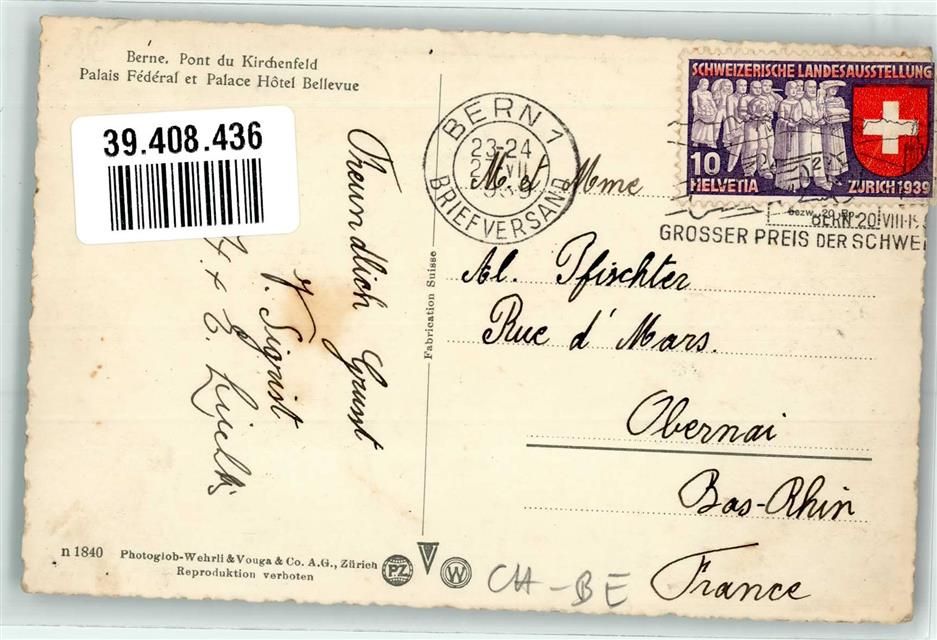 Berne. Pont du Kirchenfeld
Palais Fédéral et Palace Hôtel Bellevue
39.408.436
Freundlich Grusst
V. Sigrist
BERN 1
23-24
BRIEFVERSAND
SCHWEIZERISCHE LANDESAUSSTELLUNG
10
HELVETIA
ZÜRICH 1939
bezw. 20 Rp.
BERN 20.VIII.19
GROSSER PREIS DER SCHWEI
M et Mme
Al. Pfischter
Rue d'Mars.
Obernai
Bas-Rhin
France
Fabrication Suisse
n 1840
Photoglob-Wehrli & Vouga & Co. A.G., Zürich
Reproduktion verboten
PZ
W
CH-BE